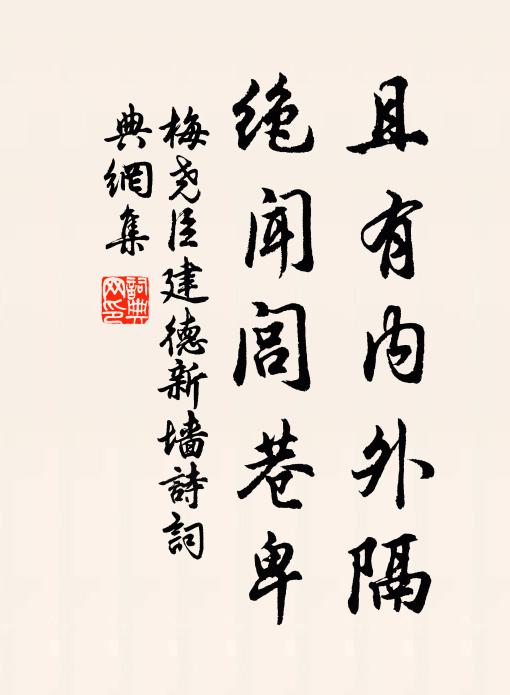 且有内外隔
绝闻闾巷卑
梅尧臣建德新墙詩詞
典網集
詞典
网印